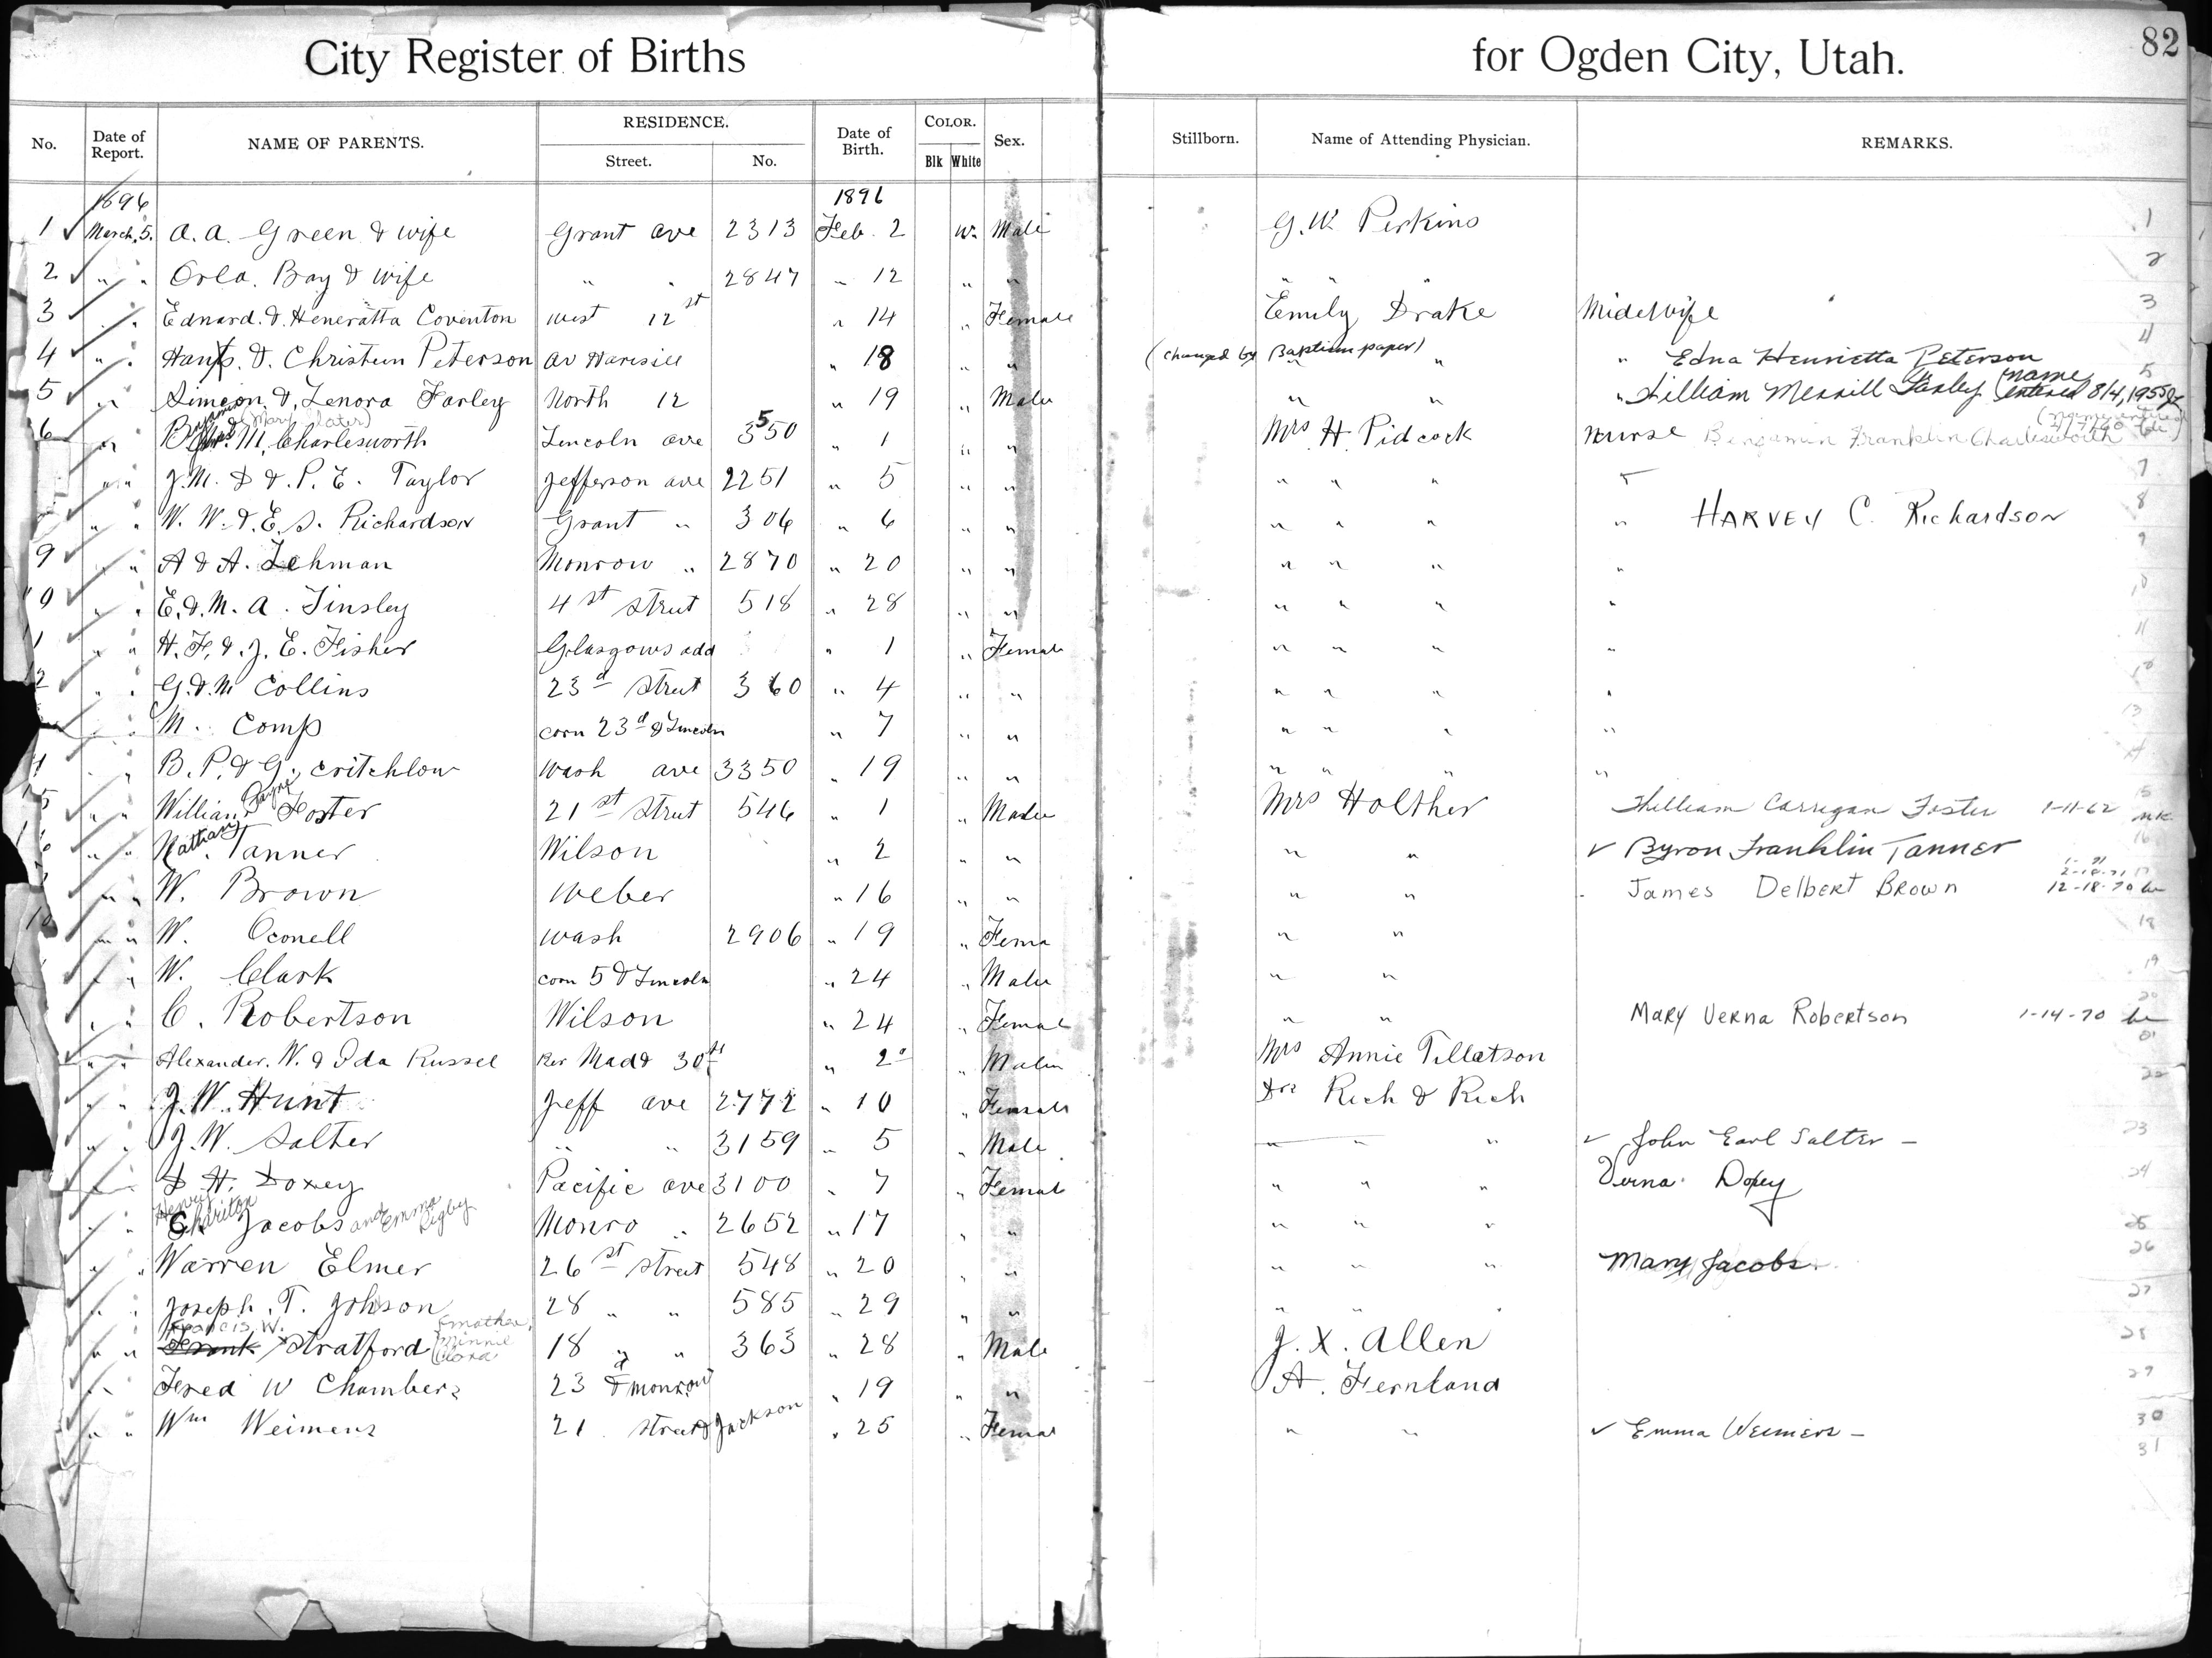 City Register of Births for Ogden City, Utah. 82
No. Date of Report. NAME OF PARENTS. RESIDENCE. Street. No. Date of Birth. COLOR. Blk White Sex. Stillborn. Name of Attending Physician. REMARKS.
1896 1896
1 March, 5. A. A. Green & wife Grant ave 2313 Feb. 2 W. Male G. W. Perkins 1
2 " " Orla. Bay & wife " " 2847 " 12 " " " " " 2
3 " " Edward. & Heneratta Coventon west 12st " 14 " Female Emily Drake Midewife 3
4 " " Hans. & Christeen Peterson " 18 " " (changed by Baptism paper) " " " Edna Henrietta Peterson 4
5 " Simeon &, Lenora Farley North 12 " 19 " Male " " " William Merrill Farley (name entered 8/4, 1955 5
6 " Benjamin (Mary Slater) M. Charlesworth Lincoln ave 3550 " 1 " " Mrs H. Pidcock nurse Benjamin Franklin Charlesworth
" " J. M. D & P. E. Taylor Jefferson ave 2251 " 5 " " " " " " 7
" " W. W. & E. S. Richardson Grant " 306 " 6 " " " " " " HARVEY C. Richardson 8
9 " " A & A. Lehman Monrow " 2870 " 20 " " " " " " 9
" " E. & M. A. Tinsley 4st Street 518 " 28 " " " " " " 10
1 " " H. F. & J. E. Fisher Glasgows add " 1 " Female " " " " 11
2 " " G. & M Collins 23d Street 360 " 4 " " " " " "
" M. Comp corn 23d & Lincoln " 7 " " " " " " 13
" " B. P. & G. Critchlow Wash ave 3350 " 19 " " " " " "
5 " " William Payne Foster 21st Street 546 " 1 " Male Mrs Holther William Carrigan Foster 1-11-62 mk 15
6 " " Nathan Tanner Wilson " 2 " " " " Byron Franklin Tanner 16
" " W. Brown Weber " 16 " " " " James Delbert Brown 12-18-70
" " W. Oconell wash 2906 " 19 " Fema " " 18
" " W. Clark corn 5 & Lincoln " 24 " Male " " 19
" " C. Robertson Wilson " 24 " Femal " " Mary Verna Robertson 1-14-70 20
" " Alexander. W. & Ida Russel Madd 30th " 2 " Male Mrs Annie Tillatson
" " J. W. Hunt Jeff ave 2772 " 10 " Female Drs Rich & Rich 22
" " J. W. Salter " " 3159 " 5 " Male " " " John Earl Salter - 23
D H. Doxey Pacific ave 3100 " 7 " Femal " " " Verna Doxey 24
" " Henry Chariton Jacobs and Emma Rigby Monro " 2652 " 17 " " " " " 25
" " Warren Elmer 26st street 548 " 20 " " " " " Mary Jacobs. 26
" " Joseph. T. Johson 28 " " 585 " 29 " " " " " 27
" " Francis W. Frank Stratford (mother. Minnie Clara 18 " " 363 " 28 " Male J. X. Allen 28
" " Fred W Chambers 23d & monrow " 19 " " A. Fernlund 29
" " Wm Weimens 21 street & Jackson " 25 " Femal " " Emma Weimers - 30
31